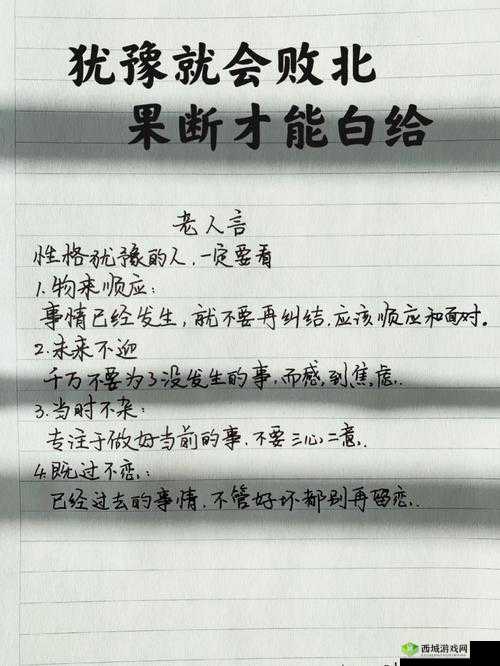 犹豫就会败北
果断才能白给
老人言
性格犹豫的人,一定要看
1.物来顺应:
事情已经发生,就不要再纠结.应该顺应和面对。
2.未来不迎
千万不要为了没发生的事,而感到焦虑.
3.当时不杂:
专注于做好当前的事.不要三心二意.
4.既过不恋:
已经过去的事情.不管好坏都别再留恋.
西城游戏网